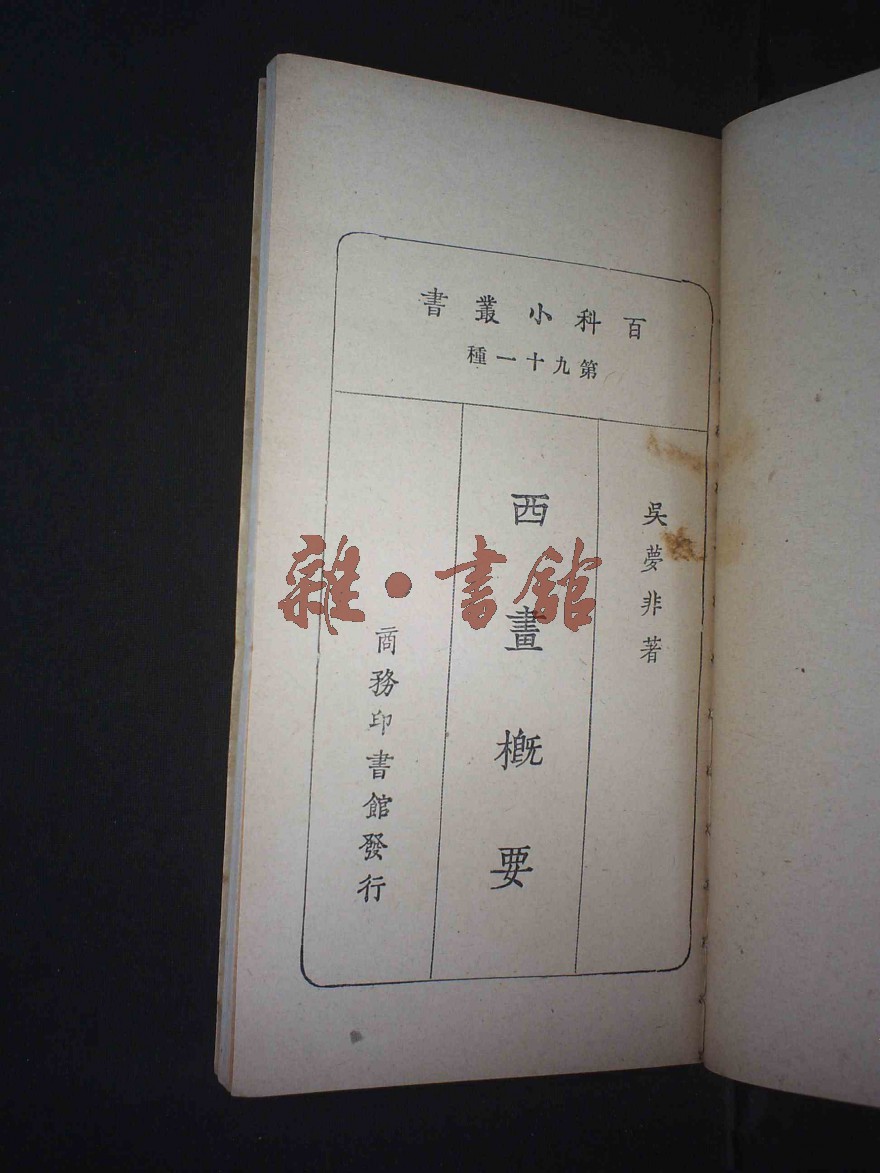 百科小叢書
第九十一種
吳夢非著
西畫概要
商務印書館發行
雜·書館